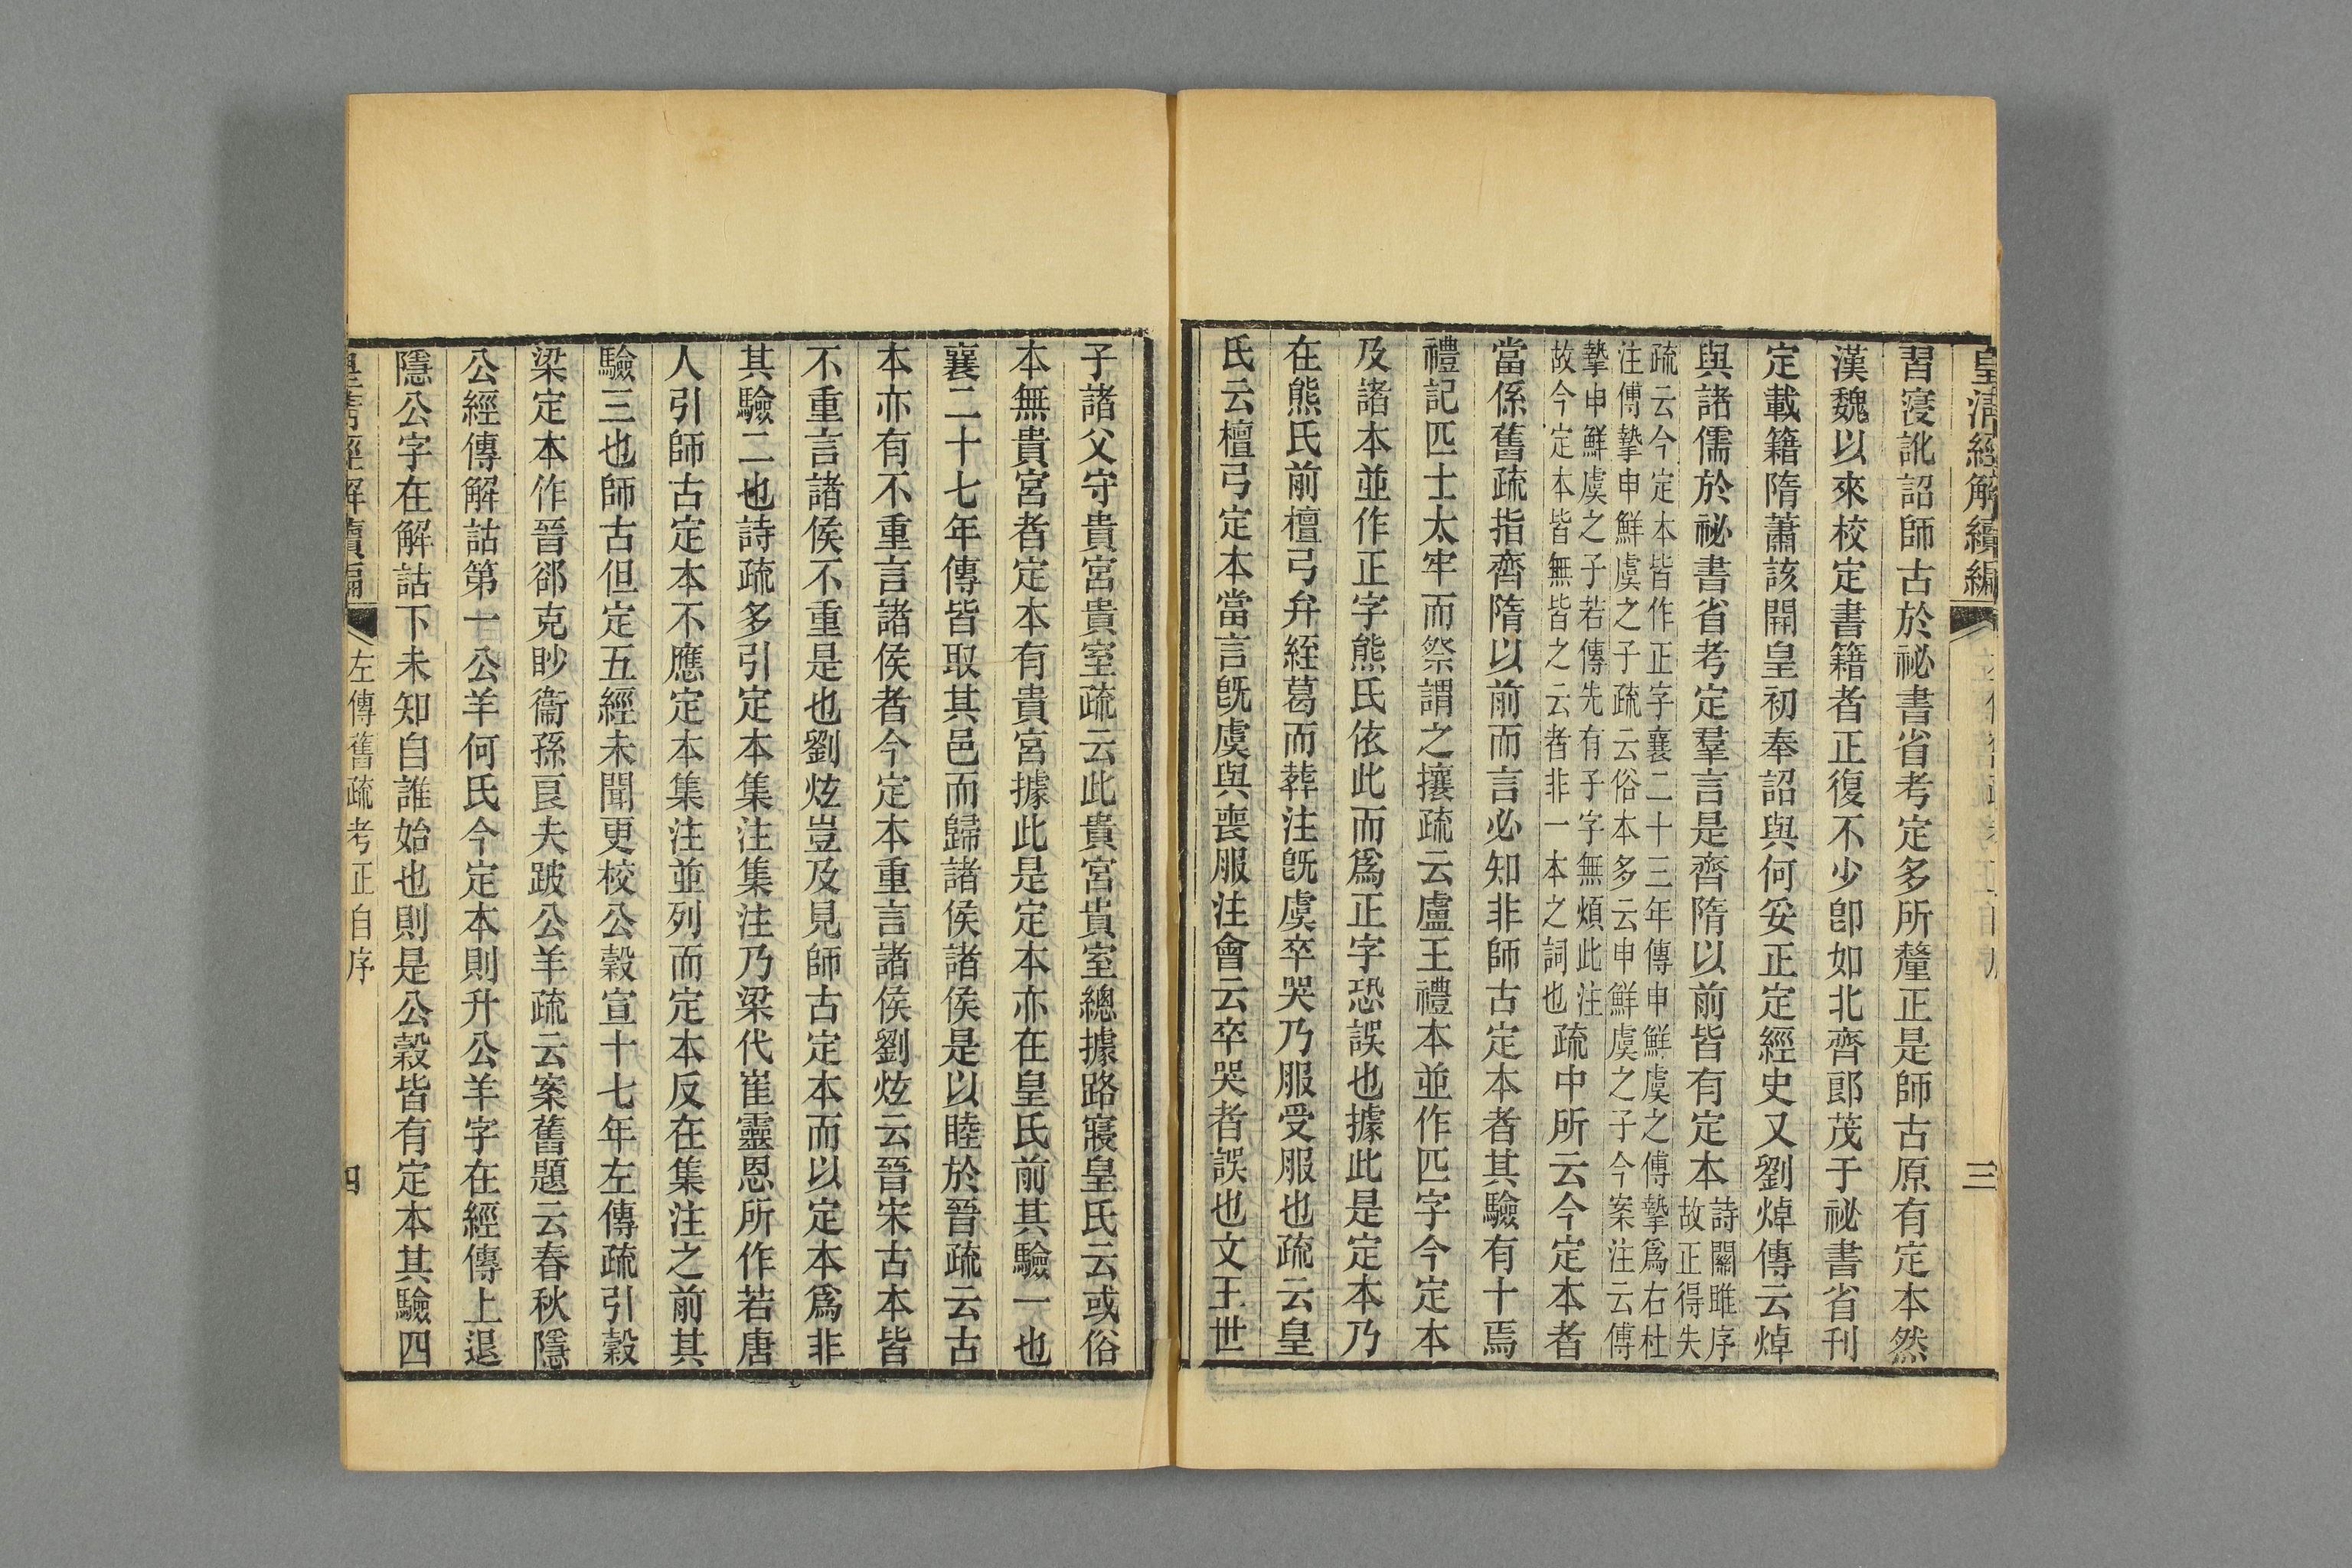 皇清經解續編
三
習寖訛詔師古於祕書省考定多所釐正是師古原有定本然
漢魏以來校定書籍者正復不少卽如北齊郎茂于祕書省刊
定載籍隋蕭該開皇初奉詔與何妥正定經史又劉焯傳云焯
與諸儒於祕書省考定羣言是齊隋以前皆有定本詩關雎序故正得失
疏云今定本皆作正字襄二十三年傳申鮮虞之傅摯爲右杜
注傅摯申鮮虞之子疏云俗本多云申鮮虞之子今案注云傅
摯申鮮虞之子若傳先有子字無煩此注
故今定本皆無皆之云者非一本之詞也疏中所云今定本者
當係舊疏指齊隋以前而言必知非師古定本者其驗有十焉
禮記匹士太牢而祭謂之攘疏云盧王禮本並作匹字今定本
及諸本並作正字熊氏依此而爲正字恐誤也據此是定本乃
在熊氏前檀弓弁絰葛而葬注旣虞卒哭乃服受服也疏云皇
氏云檀弓定本當言旣虞與喪服注會云卒哭者誤也文王世
子諸父守貴宮貴室疏云此貴宮貴室總據路寢皇氏云或俗
本無貴宮者定本有貴宮據此是定本亦在皇氏前其驗一也
襄二十七年傳皆取其邑而歸諸侯諸侯是以睦於晉疏云古
本亦有不重言諸侯者今定本重言諸侯劉炫云晉宋古本皆
不重言諸侯不重是也劉炫豈及見師古定本而以定本爲非
其驗二也詩疏多引定本集注集注乃梁代崔靈恩所作若唐
人引師古定本不應定本集注並列而定本反在集注之前其
驗三也師古但定五經未聞更校公穀宣十七年左傳疏引穀
梁定本作晉郤克眇衞孫良夫跛公羊疏云案舊題云春秋隱
公經傳解詁第一公羊何氏今定本則升公羊字在經傳上退
隱公字在解詁下未知自誰始也則是公穀皆有定本其驗四
皇清經解續編
左傳舊疏考正自序
四